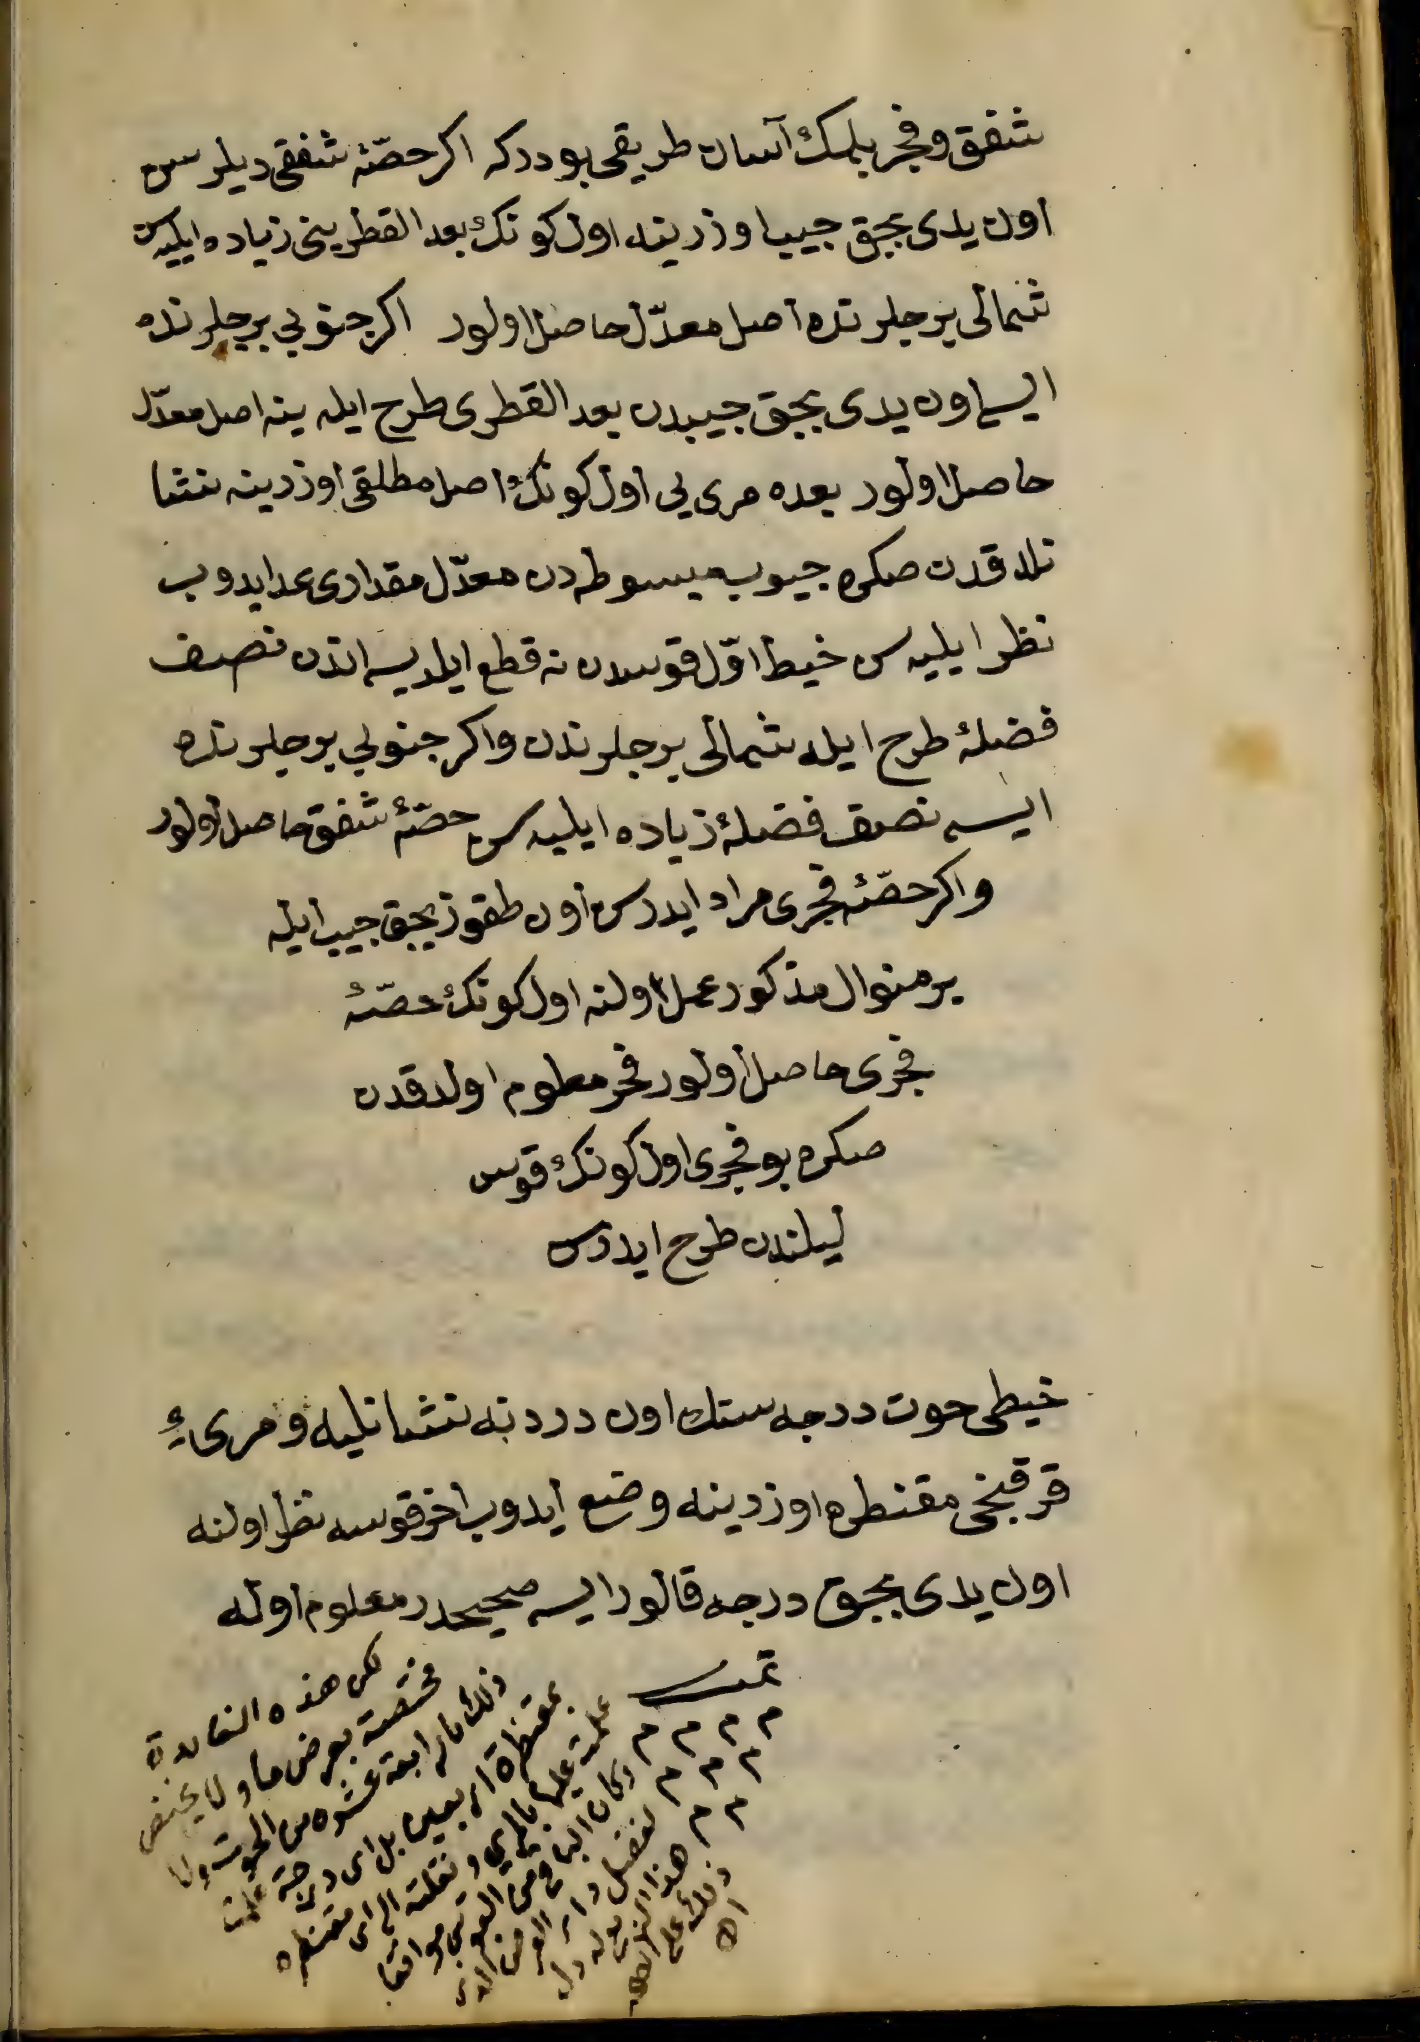 شفق و فجر بلمك آسان طريقى بودر كه اكر حصّهٔ شفقى ديلرسن
اون يدى بجق جيب اوزرينه اول كونك بعد القطرينى زياده ايليه سن
شمالى برجلرنده اصل معدّل حاصل اولور اكر جنوبى برجلرنده
ايسه اون يدى بجق جيبدن بعد القطرى طرح ايله ينه اصل معدّل
حاصل اولور بعده مرى يى اول كونك اصل مطلقى اوزرينه نشا
نلدقدن صكره جيوب مبسوطه دن معدّل مقدارى عد ايدوب
نظر ايليه سن خيط اوّل قوسدن نه قطع ايلديسه اندن نصف
فضلهٔ طرح ايله شمالى برجلرندن واكر جنوبى برجلرنده
ايسه نصف فضلهٔ زياده ايليه سن حصّهٔ شفق حاصل اولور
واكر حصّهٔ فجرى مراد ايدرسن اون طقوز بجق جيب ايله
بر منوال مذكور عمل اولنه اول كونك حصّهٔ
فجرى حاصل اولور فجر معلوم اولدقدن
صكره بو فجرى اول كونك قوس
ليلندن طرح ايدرسن
خيطى حوت درجه سنك اون دردنه نشانليه و مرىء
قرقنجى مقنطره اوزرينه وضع ايدوب اخر قوسه نظر اولنه
اون يدى بجق درجه قالور ايسه صحيحدر معلوم اوله
تمت
م م م م
م م م
م م
لكن هذه القاعدة
مختصة بعرض ما ولا يختص
ذلك بالرابعة عشره من الحوت ولا
بمقنطرة اربعين بل اى درجة علمت
علمت عليها بالمري ونقلته الى اى مقنطره
وكان الباقى من القوس موافقا
لفضل دائر العرض الذى
هذا
ذلك على
اه